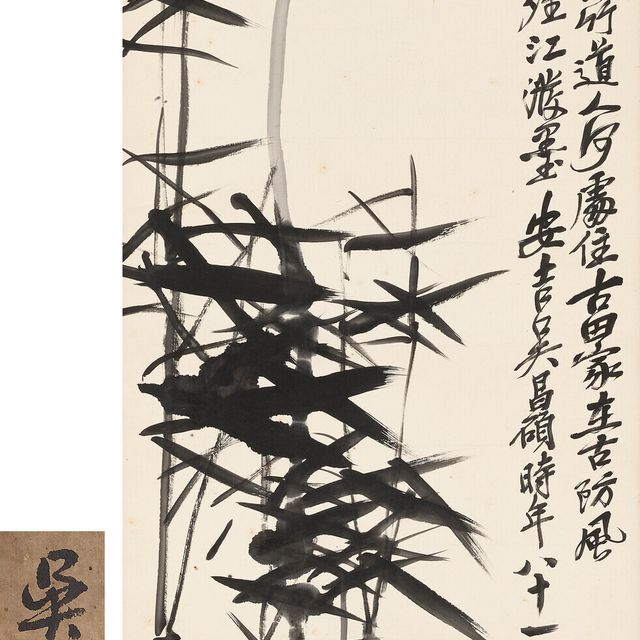 道人何處住古田家在古防風
江潑墨安吉吳昌碩時年八十一
吳